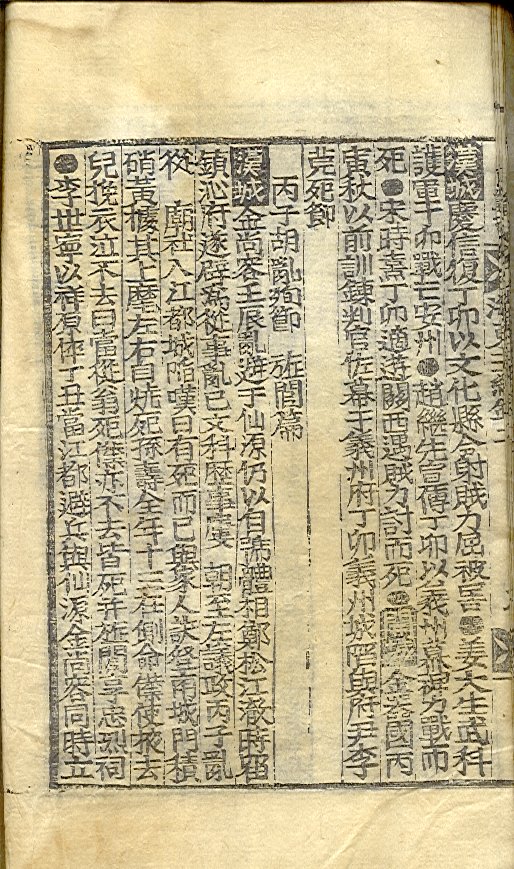 漢城慶信復丁卯以文化縣令射賊力屈被害 姜大生武科
護軍丁卯戰亡安州 趙繼先宣傳丁卯以義州幕裨力戰而
死 宋時熹丁卯適遊關西遇賊力討而死 開城 金 國丙
寅秋以前訓鍊判官佐幕于義州府丁卯義州城陷與府尹李
莞死節
丙子胡亂殉節 旌閭篇
漢城金尚容壬辰亂遊于仙源仍以自號體相鄭松江澈時
鎮沁府遂辟爲從事亂已文科歷事 朝至左議政丙子亂
從 廟社入江都城陷嘆曰有死而已與家人訣登南城門積
硝黃據其上麾左右自 死孫壽全年十三在側命傑使 去
兒挽衣泣不去曰當從翁死傑亦不去皆死 旌閭享忠烈祠
李世寧以 原 丁丑當江都避兵與仙源金尚容同時立